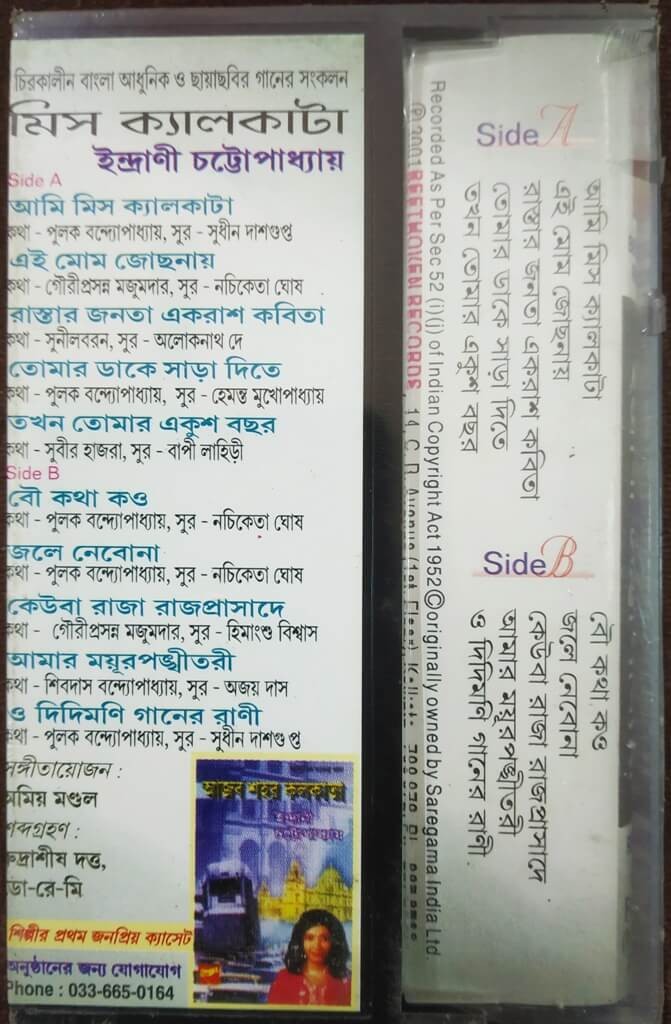 চিরকালীন বাংলা আধুনিক ও ছায়াছবির গানের সংকলন
মিস ক্যালকাটা
ইন্দ্রাণী চট্টোপাধ্যায়
Side A
আমি মিস ক্যালকাটা
কথা - পুলক বন্দ্যোপাধ্যায়, সুর - সুধীন দাশগুপ্ত
এই মোম জোছনায়
কথা - গৌরীপ্রসন্ন মজুমদার, সুর - নচিকেতা ঘোষ
রাস্তার জনতা একরাশ কবিতা
কথা - সুনীলবরন, সুর - অলোকনাথ দে
তোমার ডাকে সাড়া দিতে
কথা - পুলক বন্দ্যোপাধ্যায়, সুর - হেমন্ত মুখোপাধ্যায়
তখন তোমার একুশ বছর
কথা - সুবীর হাজরা, সুর - বাপী লাহিড়ী
Side B
বৌ কথা কও
কথা - পুলক বন্দ্যোপাধ্যায়, সুর - নচিকেতা ঘোষ
জলে নেবোনা
কথা - পুলক বন্দ্যোপাধ্যায়, সুর - নচিকেতা ঘোষ
কেউবা রাজা রাজপ্রাসাদে
কথা - গৌরীপ্রসন্ন মজুমদার, সুর - হিমাংশু বিশ্বাস
আমার ময়ূরপঙ্খীতরী
কথা - শিবদাস বন্দ্যোপাধ্যায়, সুর - অজয় দাস
ও দিদিমণি গানের রাণী
কথা - পুলক বন্দ্যোপাধ্যায়, সুর - সুধীন দাশগুপ্ত
সঙ্গীতায়োজন :
অমিয় মণ্ডল
শব্দগ্রহণ :
রুদ্রাশীষ দত্ত,
ডা-রে-মি
শিল্পীর প্রথম জনপ্রিয় ক্যাসেট
অনুষ্ঠানের জন্য যোগাযোগ
Phone : 033-665-0164
আজব শহর কলকাতা
Side A
আমি মিস ক্যালকাটা
এই মোম জোছনায়
রাস্তার জনতা একরাশ কবিতা
তোমার ডাকে সাড়া দিতে
তখন তোমার একুশ বছর
Side B
বৌ কথা কও
জলে নেবোনা
কেউবা রাজা রাজপ্রাসাদে
আমার ময়ূরপঙ্খীতরী
ও দিদিমণি গানের রাণী
Recorded As Per Sec 52 (i)(j) of Indian Copyright Act 1952 © originally owned by Saregama India Ltd.
℗ 2001 BEETHOVEN RECORDS, 14, C. R. Avenue (1st Floor)